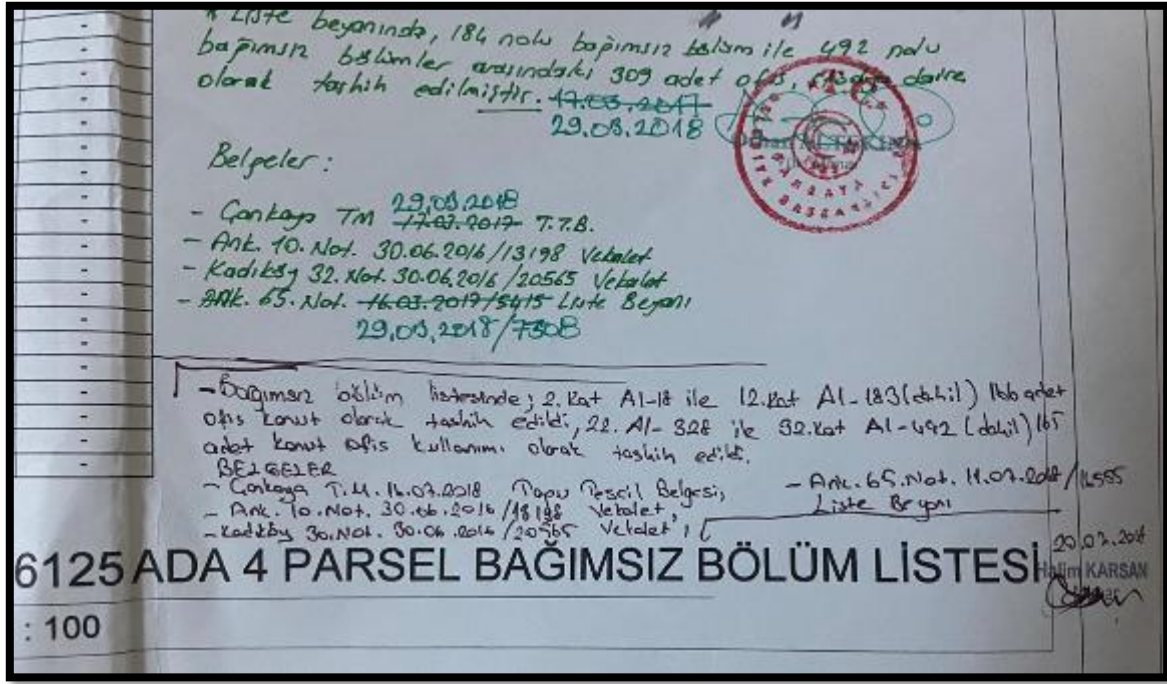 * Liste beyanında, 184 nolu bağımsız bölüm ile 492 nolu
bağımsız bölümler arasındaki 309 adet ofis, daire
olarak tashih edilmiştir. 17.03.2017
29.03.2018
Belgeler:
29.03.2018
- Çankaya TM 17.03.2017 T.T.B.
- Ank. 10. Not. 30.06.2016/13198 Vekalet
- Kadıköy 32. Not. 30.06.2016/20565 Vekalet
- Ank. 65. Not. 16.03.2017/5415 Liste Beyanı
29.03.2018/7308
- Bağımsız bölüm listesinde; 2. Kat A1-18 ile 12. Kat A1-183 (dahil) 166 adet
ofis konut olarak tashih edildi, 22. A1-328 ile 32. Kat A1-492 (dahil) 165
adet konut ofis kullanımı olarak tashih edildi.
BELGELER
- Çankaya T.M. 16.07.2018 Tapu Tescil Belgesi,
- Ank. 65. Not. 11.07.2018/
Liste Beyanı
- Ank. 10. Not. 30.06.2016/ Vekalet,
- Kadıköy Not. 30.06.2016/20565 Vekalet,
6125 ADA 4 PARSEL BAĞIMSIZ BÖLÜM LİSTESİ
Halim KARSAN
: 100